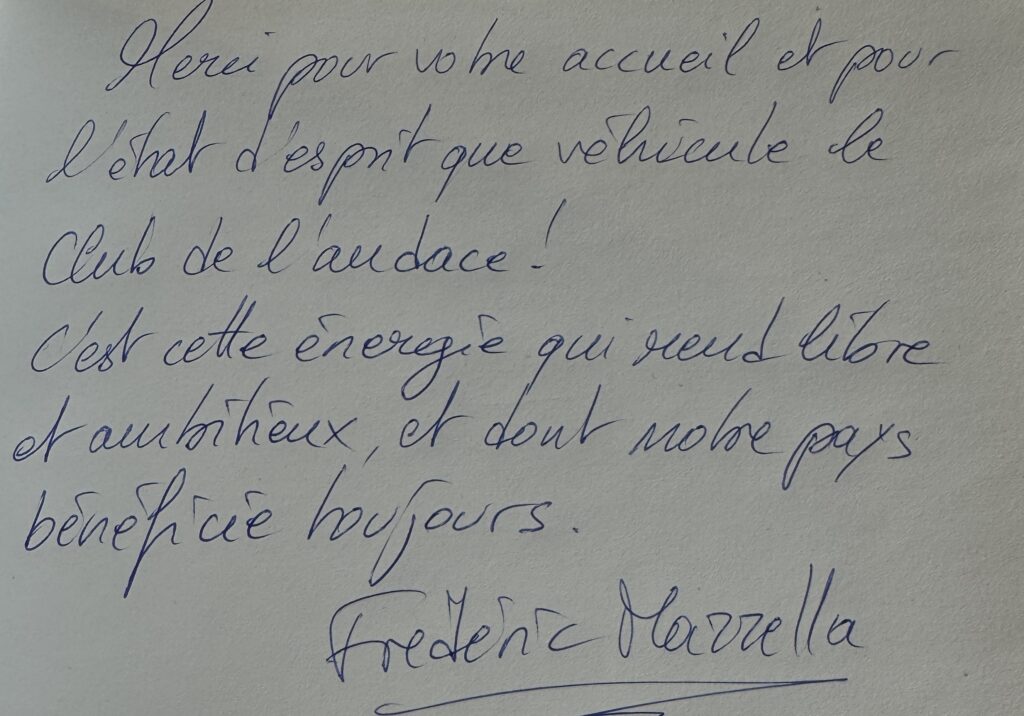 Merci pour votre accueil et pour
l'état d'esprit que véhicule le
Club de l'audace !
C'est cette énergie qui rend libre
et ambitieux, et dont notre pays
bénéficie toujours.
Frédéric Mazzella